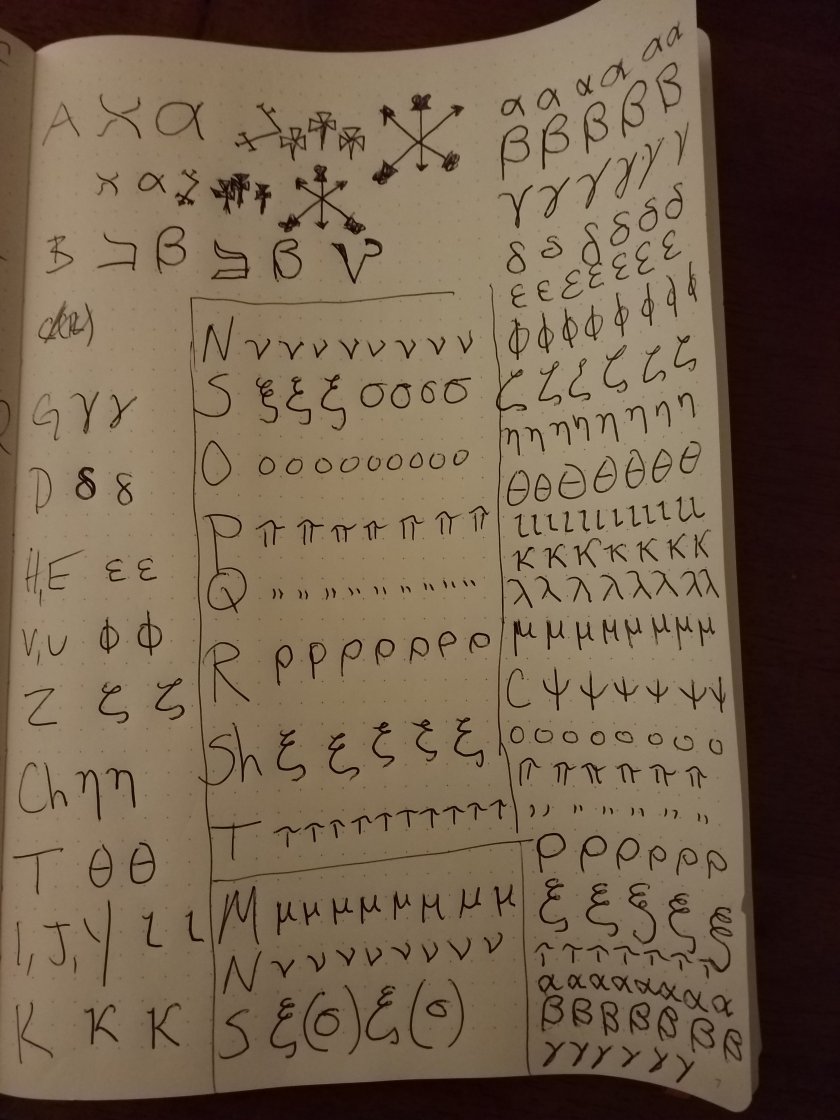 A α
α
B β β
G γ γ
D δ δ
H,E ε ε
V,U ϕ ϕ
Z ζ ζ
Ch η η
T θ θ
I, J, Y ι ι
K κ κ
N ν ν ν ν ν ν ν ν
S ξ ξ ξ σ σ σ σ
O ο ο ο ο ο ο ο ο ο
P π π π π π π π
Q " " " " " " " "
R ρ ρ ρ ρ ρ ρ ρ
Sh ξ ξ ξ ξ ξ
T τ τ τ τ τ τ τ τ τ τ
M μ μ μ μ μ μ μ μ
N ν ν ν ν ν ν ν ν
S ξ (σ) ξ (σ)
α α α α α α
β β β β β
γ γ γ γ γ γ
δ δ δ δ δ δ
ε ε ε ε ε ε ε
ϕ ϕ ϕ ϕ ϕ ϕ ϕ ϕ
ζ ζ ζ ζ ζ ζ
η η η η η η η η
θ θ θ θ θ θ θ
ι ι ι ι ι ι ι ι ι ι
κ κ κ κ κ κ κ
λ λ λ λ λ λ λ λ
μ μ μ μ μ μ μ μ
C ψ ψ ψ ψ ψ ψ
ο ο ο ο ο ο ο ο
π π π π π π
" " " " " " "
ρ ρ ρ ρ ρ ρ
ξ ξ ξ ξ ξ
τ τ τ τ τ τ τ
α α α α α α α α
β β β β β β β
γ γ γ γ γ γ
7